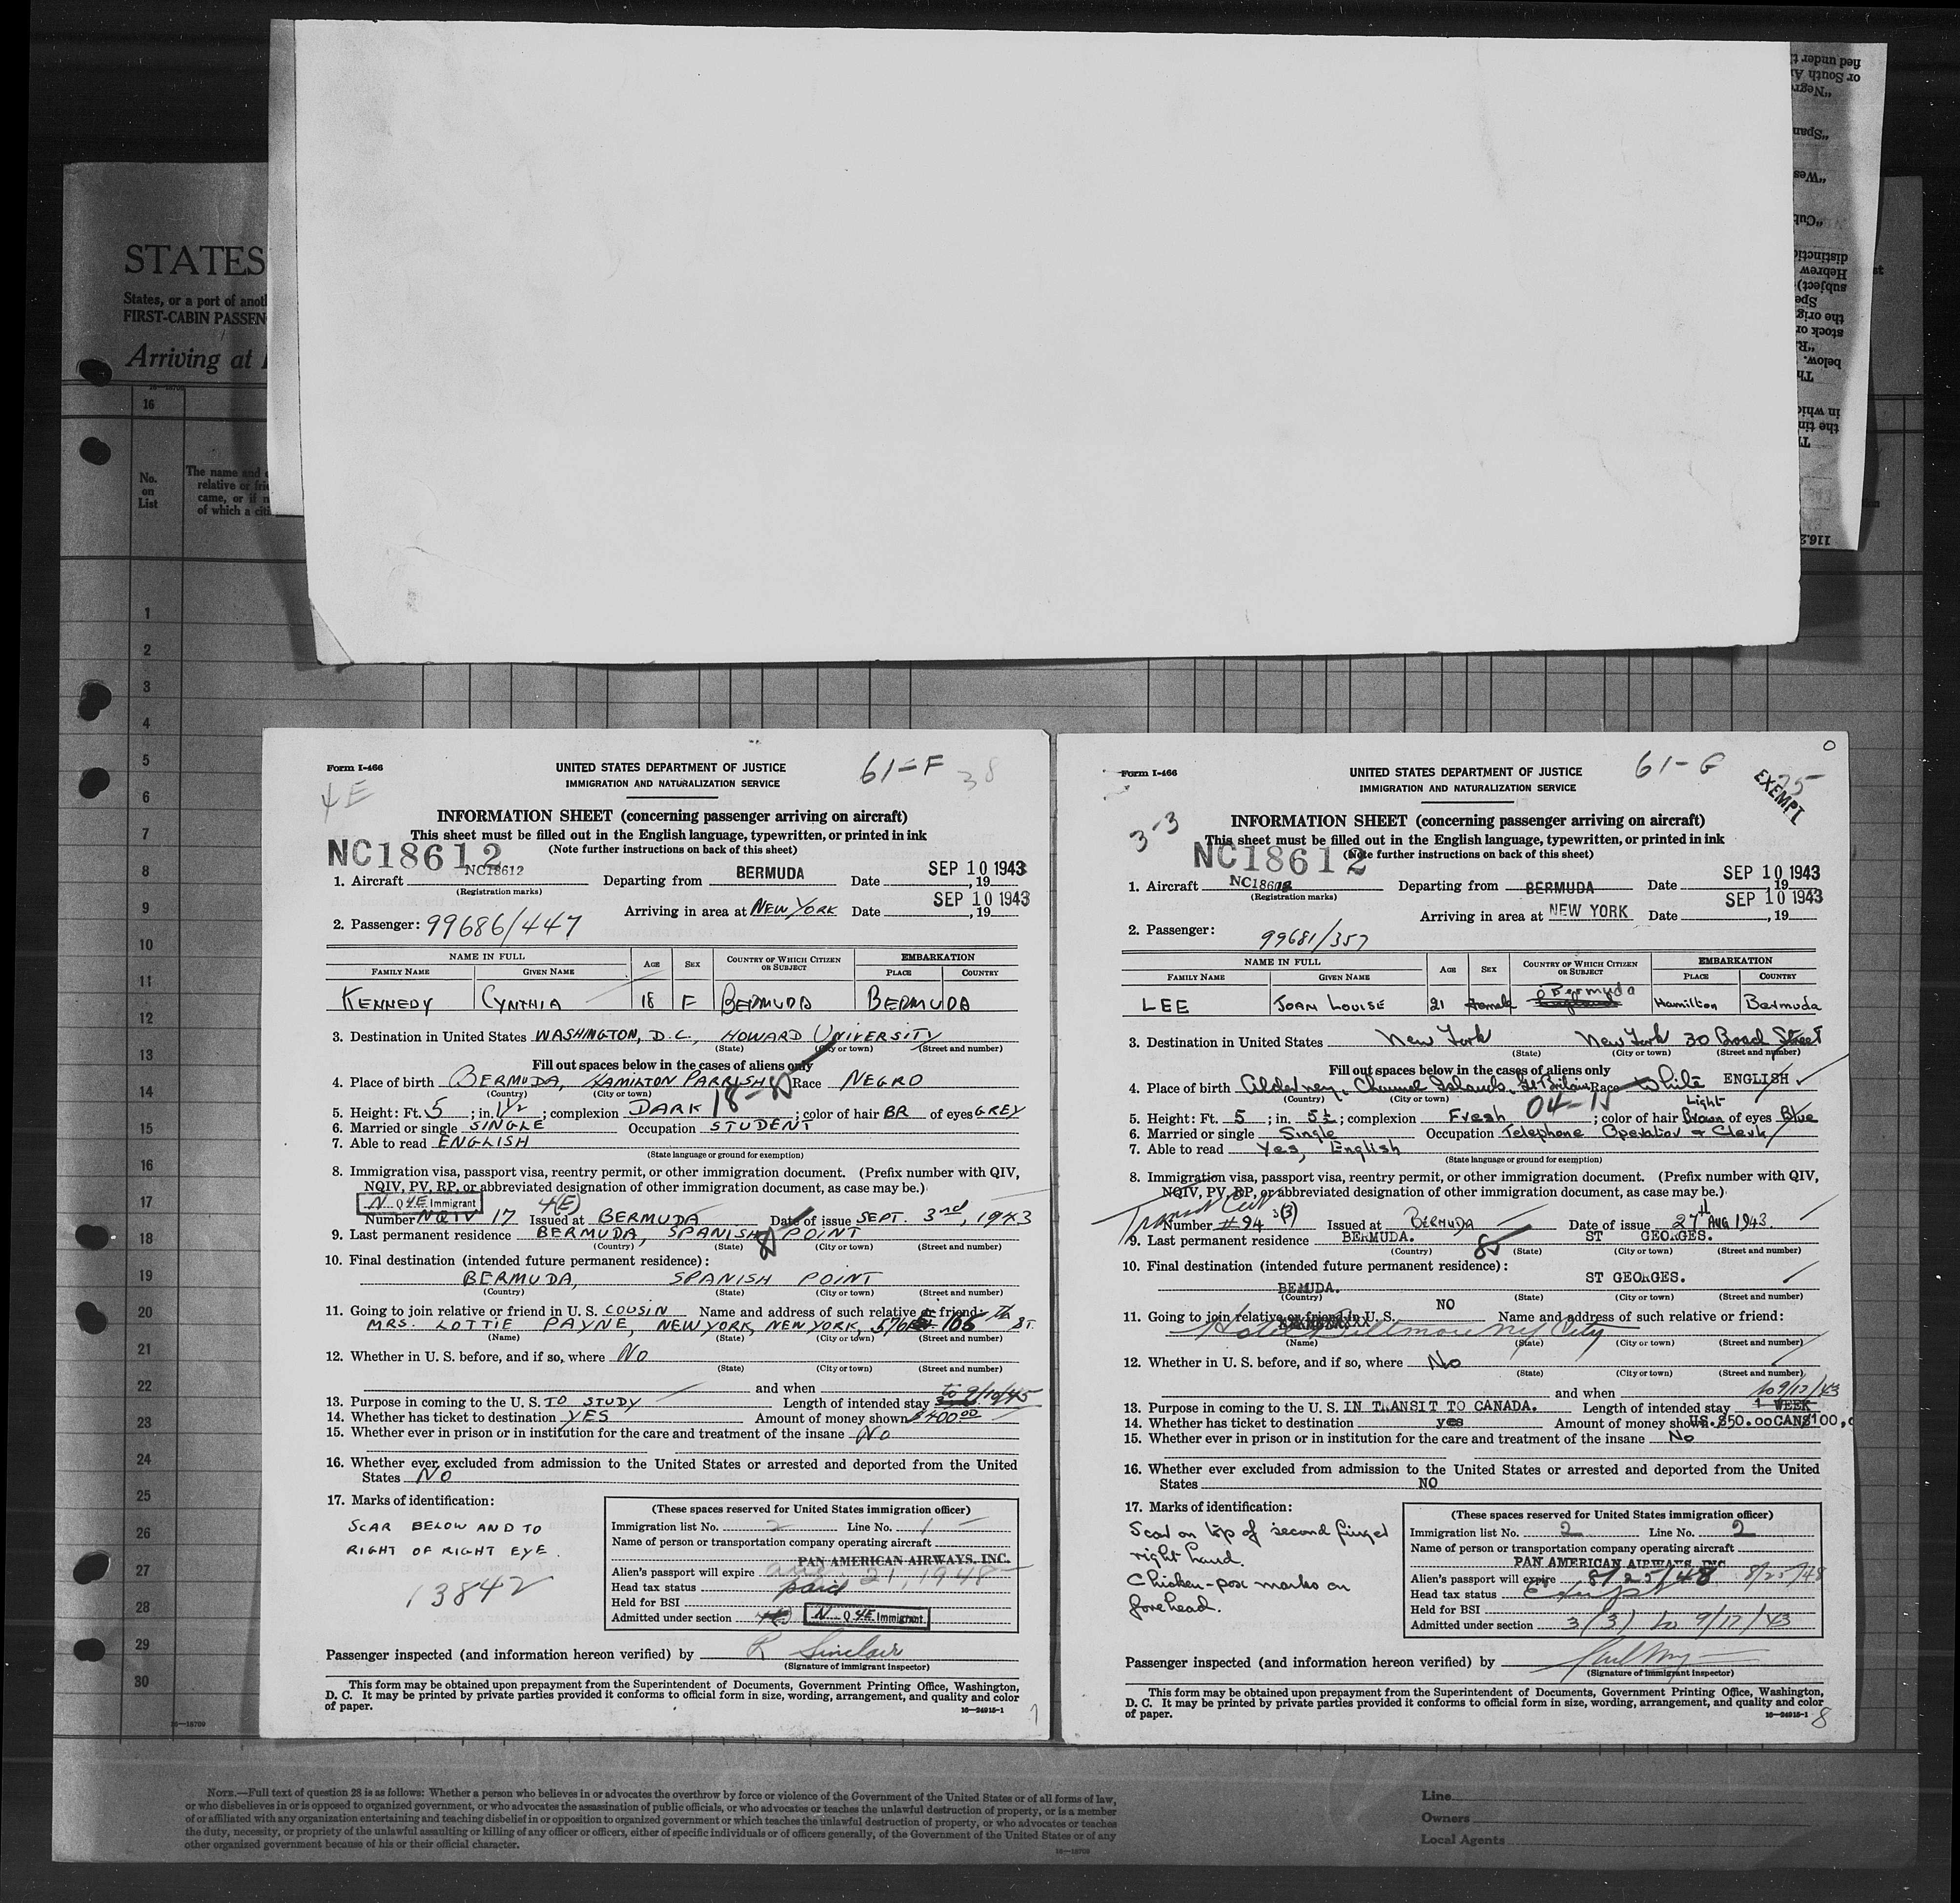 STATES
States, or a port of anot
FIRST-CABIN PASSEN
Arriving at
16—18709
16
No.
on
List
The name and
relative or frie
came, or if n
of which a citi
1
2
3
4
5
6
7
8
9
10
11
12
13
14
15
16
17
18
19
20
21
22
23
24
25
26
27
28
29
30
16—18709
fied under t
or South A
"Negr
"Span
"Wes
"Cub
distincti
Hebrew
subject)
Spe
the orig
stock or
"R
below.
Th
in whic
the tim
T
116.2
Form I-466
UNITED STATES DEPARTMENT OF JUSTICE
61-F 38
IMMIGRATION AND NATURALIZATION SERVICE
4E
INFORMATION SHEET (concerning passenger arriving on aircraft)
This sheet must be filled out in the English language, typewritten, or printed in ink
(Note further instructions on back of this sheet)
NC18612
1. Aircraft NC18612 Departing from BERMUDA Date SEP 10 1943, 19
(Registration marks)
Arriving in area at NEW YORK Date SEP 10 1943, 19
2. Passenger: 99686/447
NAME IN FULL AGE SEX COUNTRY OF WHICH CITIZEN OR SUBJECT EMBARKATION
FAMILY NAME GIVEN NAME PLACE COUNTRY
KENNEDY CYNTHIA 18 F BERMUDA BERMUDA
3. Destination in United States WASHINGTON, D.C. HOWARD UNIVERSITY
(State) (City or town) (Street and number)
Fill out spaces below in the cases of aliens only
4. Place of birth BERMUDA, HAMILTON PARRISH Race NEGRO
(Country) (City or town)
5. Height: Ft. 5; in. 1 1/2; complexion DARK; color of hair BR of eyes GREY
6. Married or single SINGLE Occupation STUDENT
7. Able to read ENGLISH
(State language or ground for exemption)
8. Immigration visa, passport visa, reentry permit, or other immigration document. (Prefix number with QIV,
NQIV, PV, RP, or abbreviated designation of other immigration document, as case may be.)
N Q 4E Immigrant 4(E)
Number NQIV 17 Issued at BERMUDA Date of issue SEPT. 3rd, 1943
9. Last permanent residence BERMUDA, SPANISH POINT
(Country) (State) (City or town) (Street and number)
10. Final destination (intended future permanent residence):
BERMUDA, SPANISH POINT
(Country) (State) (City or town) (Street and number)
11. Going to join relative or friend in U. S. COUSIN Name and address of such relative or friend:
MRS. LOTTIE PAYNE, NEW YORK, NEW YORK, 576 106 Th ST.
(Name) (State) (City or town) (Street and number)
12. Whether in U. S. before, and if so, where NO
(State) (City or town) (Street and number)
and when
to 9/10/45
13. Purpose in coming to the U. S. TO STUDY Length of intended stay
14. Whether has ticket to destination YES Amount of money shown $400.00
15. Whether ever in prison or in institution for the care and treatment of the insane NO
16. Whether ever excluded from admission to the United States or arrested and deported from the United
States NO
17. Marks of identification:
SCAR BELOW AND TO
RIGHT OF RIGHT EYE.
13842
(These spaces reserved for United States immigration officer)
Immigration list No. 2 Line No. 1
Name of person or transportation company operating aircraft
PAN AMERICAN AIRWAYS, INC.
Alien's passport will expire 21, 1948
Head tax status paid
Held for BSI
Admitted under section N Q 4E Immigrant
Passenger inspected (and information hereon verified) by R Sinclair
(Signature of immigrant inspector)
This form may be obtained upon prepayment from the Superintendent of Documents, Government Printing Office, Washington,
D. C. It may be printed by private parties provided it conforms to official form in size, wording, arrangement, and quality and color
of paper.
16—24915-1
Form I-466
UNITED STATES DEPARTMENT OF JUSTICE
61-G
IMMIGRATION AND NATURALIZATION SERVICE
EXEMPT
3-3
INFORMATION SHEET (concerning passenger arriving on aircraft)
This sheet must be filled out in the English language, typewritten, or printed in ink
(Note further instructions on back of this sheet)
NC18612
1. Aircraft NC18602 Departing from BERMUDA Date SEP 10 1943, 19
(Registration marks)
Arriving in area at NEW YORK Date SEP 10 1943, 19
2. Passenger: 99681/357
NAME IN FULL AGE SEX COUNTRY OF WHICH CITIZEN OR SUBJECT EMBARKATION
FAMILY NAME GIVEN NAME PLACE COUNTRY
LEE JOAN LOUISE 21 Female Bermuda Hamilton Bermuda
3. Destination in United States New York New York 30 Broad Street
(State) (City or town) (Street and number)
Fill out spaces below in the cases of aliens only
4. Place of birth Alderney, Channel Islands, Gt Britain Race White ENGLISH
(Country) (City or town)
5. Height: Ft. 5; in. 5 1/2; complexion Fresh; color of hair Light Brown of eyes Blue
6. Married or single Single Occupation Telephone Operator & Clerk
7. Able to read Yes, English
(State language or ground for exemption)
8. Immigration visa, passport visa, reentry permit, or other immigration document. (Prefix number with QIV,
NQIV, PV, RP, or abbreviated designation of other immigration document, as case may be.)
Number #94 3(3) Issued at BERMUDA Date of issue 27th AUG 1943.
9. Last permanent residence BERMUDA. ST GEORGES.
(Country) (State) (City or town) (Street and number)
10. Final destination (intended future permanent residence):
BEMUDA. ST GEORGES.
(Country) (State) (City or town) (Street and number)
11. Going to join relative or friend in U. S. NO Name and address of such relative or friend:
Hotel Biltmore NY City
(Name) (State) (City or town) (Street and number)
12. Whether in U. S. before, and if so, where No
(State) (City or town) (Street and number)
and when
to 9/17/43
13. Purpose in coming to the U. S. IN TRANSIT TO CANADA. Length of intended stay 1 WEEK
14. Whether has ticket to destination yes Amount of money shown US.$50.00 CAN$100,
15. Whether ever in prison or in institution for the care and treatment of the insane No
16. Whether ever excluded from admission to the United States or arrested and deported from the United
States NO
17. Marks of identification:
Scar on top of second finger
right hand.
Chicken-pox marks on
forehead.
(These spaces reserved for United States immigration officer)
Immigration list No. 2 Line No. 2
Name of person or transportation company operating aircraft
PAN AMERICAN AIRWAYS, INC
Alien's passport will expire 8/25/48 8/25/48
Head tax status Exempt
Held for BSI
Admitted under section 3(3) to 9/17/43
Passenger inspected (and information hereon verified) by
(Signature of immigrant inspector)
This form may be obtained upon prepayment from the Superintendent of Documents, Government Printing Office, Washington,
D. C. It may be printed by private parties provided it conforms to official form in size, wording, arrangement, and quality and color
of paper.
16—24915-1 8
NOTE.—Full text of question 28 is as follows: Whether a person who believes in or advocates the overthrow by force or violence of the Government of the United States or of all forms of law,
or who disbelieves in or is opposed to organized government, or who advocates the assassination of public officials, or who advocates or teaches the unlawful destruction of property, or is a member
of or affiliated with any organization entertaining and teaching disbelief in or opposition to organized government or which teaches the unlawful destruction of property, or who advocates or teaches
the duty, necessity, or propriety of the unlawful assaulting or killing of any officer or officers, either of specific individuals or of officers generally, of the Government of the United States or of any
other organized government because of his or their official character.
16—18709
Line
Owners
Local Agents